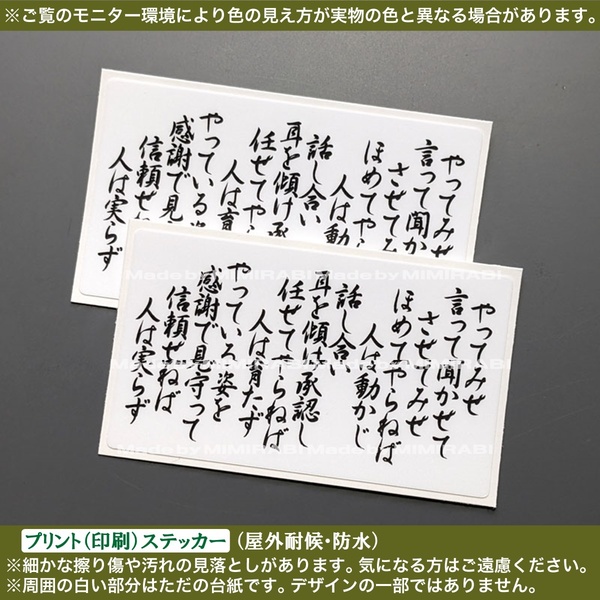 ※ご覧のモニター環境により色の見え方が実物の色と異なる場合があります。
やってみせ
言って聞か
させてみ
ほめてやら
人は動
話し合い
耳を傾け承
任せてやら
人は育
やっている姿
感謝で見
信頼せ
人は実らず
やってみせ
言って聞かせて
させてみせ
ほめてやらねば
人は動かじ
話し合い
耳を傾け承認し
任せてやらねば
人は育たず
やっている姿を
感謝で見守って
信頼せねば
人は実らず
Made by MIMIRABI Made by MIMIRABI
Made by MIMIRABI Made by MIMIRABI
プリント(印刷)ステッカー(屋外耐候・防水)
※細かな擦り傷や汚れの見落としがあります。気になる方はご遠慮ください。
※周囲の白い部分はただの台紙です。デザインの一部ではありません。